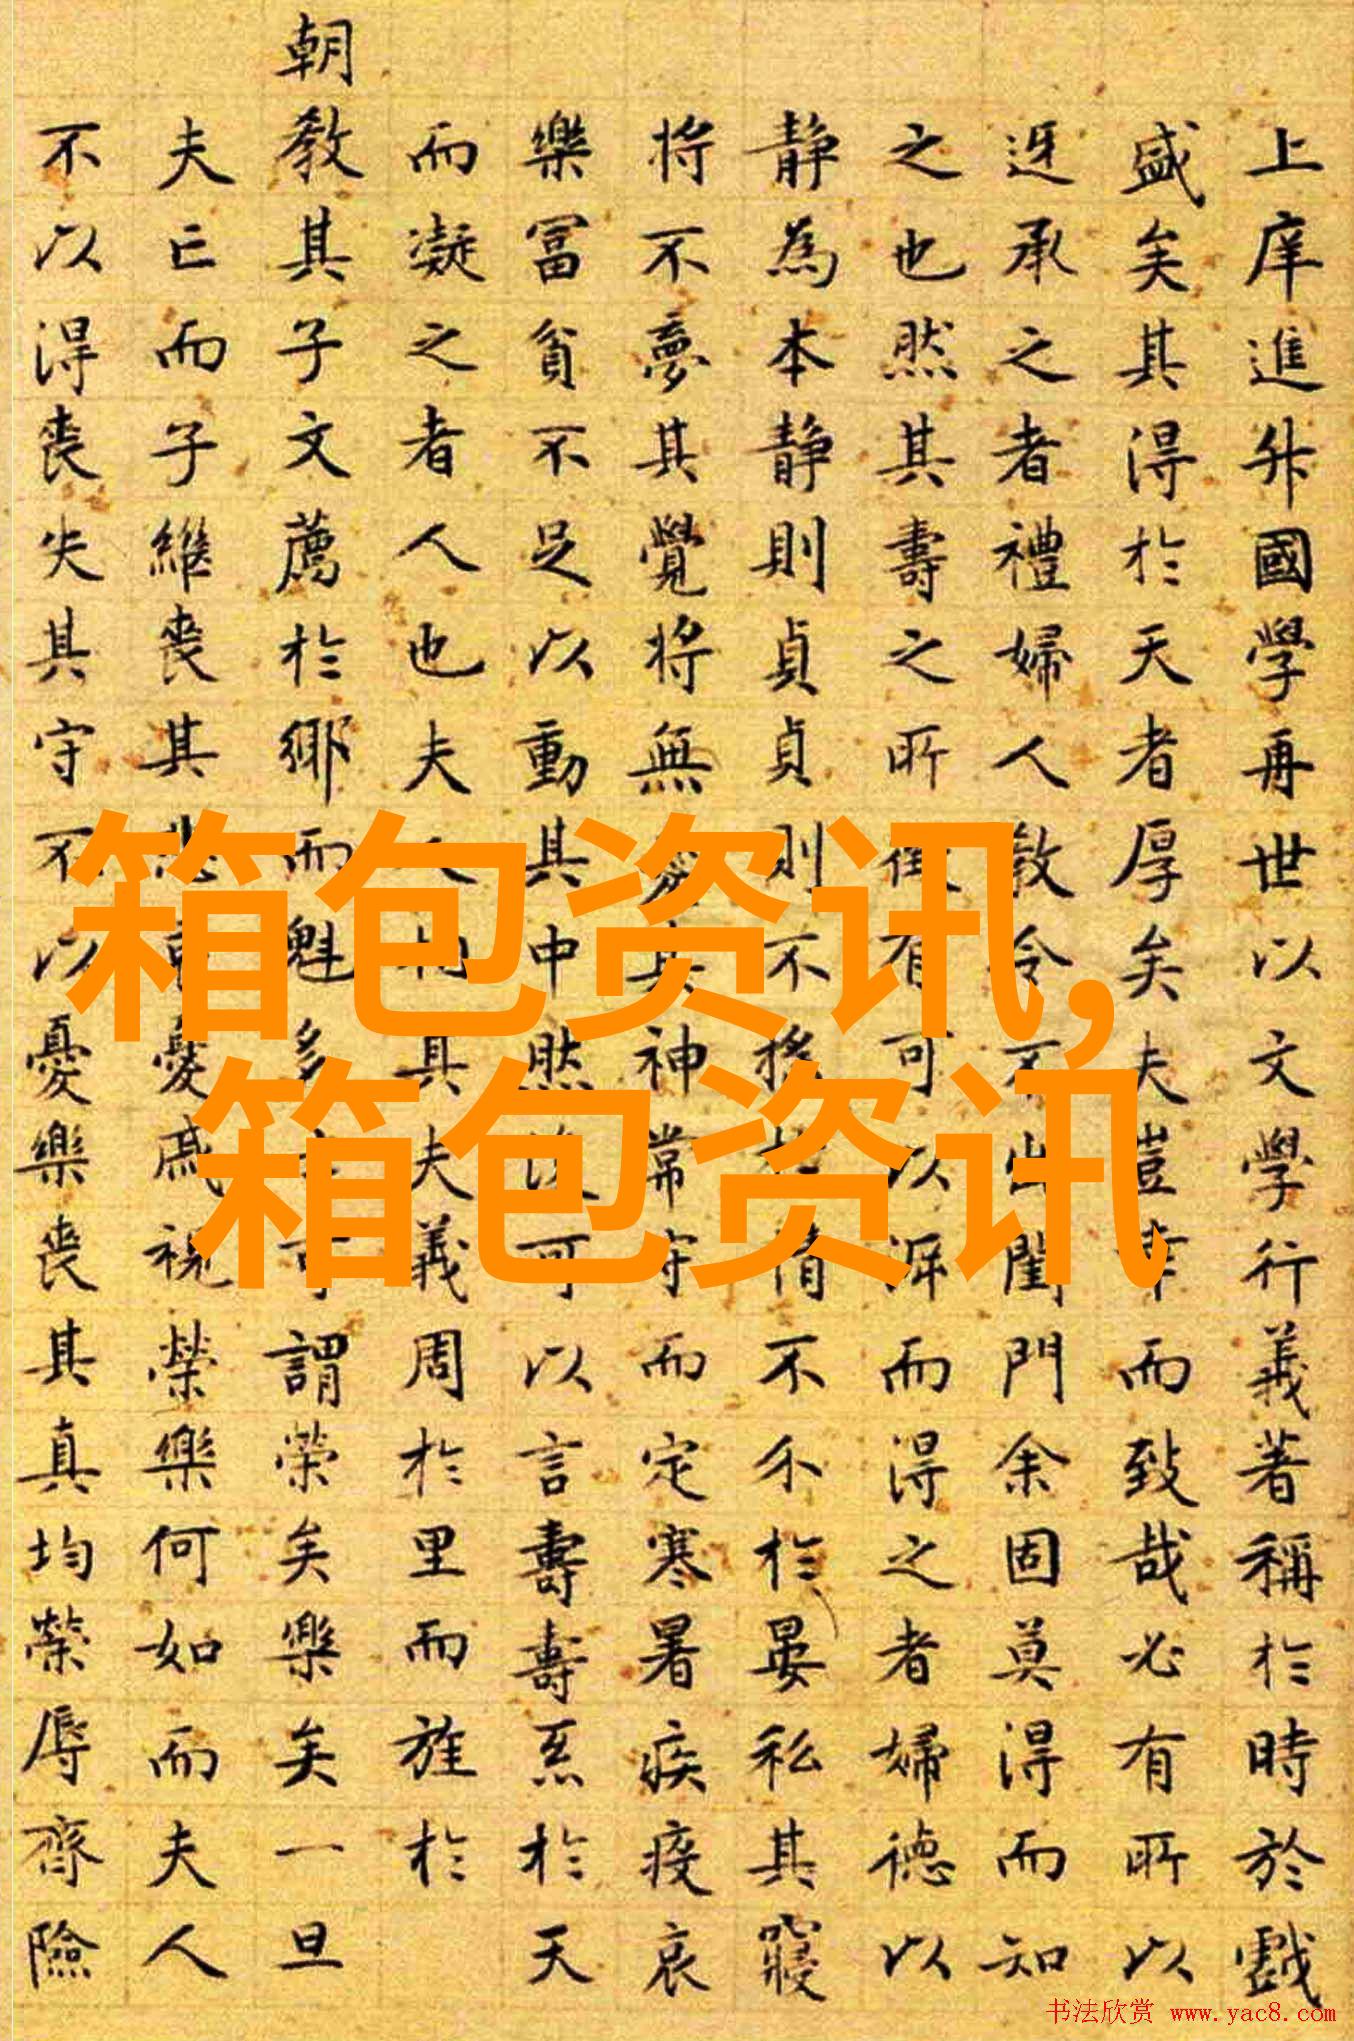 上庠進升國學再世以文學行義著稱於時於戲
盛矣其得於天者厚矣夫豈幸而致哉必有所以
迓承之者禮婦人教令不出閨門余固莫得而知
之也然其壽之所有可以涯而得之者婦德以
静為本静則貞貞則不於情不於晏私其寢
將不夢其覺將無其神常守而定寒暑疾疫哀
樂冨貧不足以動其中然後可以言壽壽於天
而凝之者人也夫人相其夫義周於里而旌於
朝教其子文薦於鄉而魁多士可謂榮矣樂矣一旦
夫亡而子繼喪其悲哀憂戚視榮樂何如而夫人
不以得喪失其守不以憂樂喪其真均榮辱齊險
箱包资讯,
箱包资讯
书法欣赏 www.yac8.com